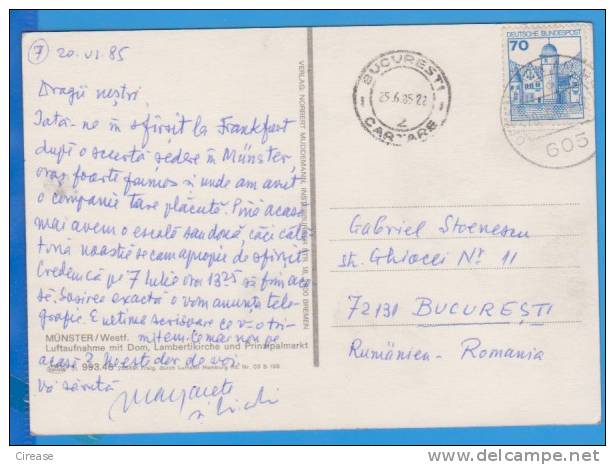 7 20.VI.85
Dragii noștri,
Iată-ne în sfîrșit la Frankfurt
după o scurtă ședere în Münster,
oraș foarte frumos și unde am avut
o companie tare plăcută. Pînă acasă
mai avem o escală sau două, căci călă-
toria noastră se cam apropie de sfîrșit
Credem că pe 7 Iulie ora 1325 să fim aca-
să. Sosirea exactă o vom anunța tele-
grafic. E ultima scrisoare ce v-o tri-
mitem. Ce mai nou pe
acasă? Ne este dor de voi.
Vă sărută
MÜNSTER/Westf.
Luftaufnahme mit Dom, Lambertikirche und Prinzipalmarkt
VERLAG NORBERT MÜDDEMANN, BREMEN
BUCUREȘTI
25.6.85.22
2
CARTARE
DEUTSCHE BUNDESPOST
70
605
Gabriel Stoenescu
str. Ghiocei Nr. 11
72131 BUCUREȘTI
Rumänien - Romania
www.delcampe.net